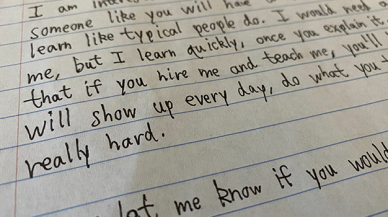 I am
someone like you will have
learn like typical people do. I would need
me, but I learn quickly, once you explain it
that if you hire me and teach me, you'll
will show up every day, do what you
really hard.
let me know if you would